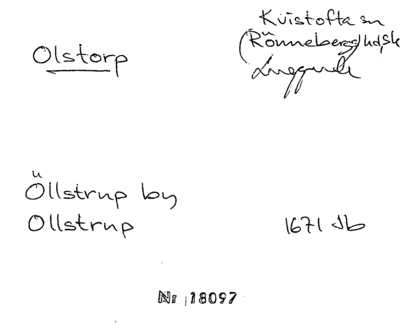 Olstorp
Kvistofta sn
(Rönnebergs hd, Sk
Luggude
Öllstrup by
Ollstrup
1671 Jb
Nr 18097